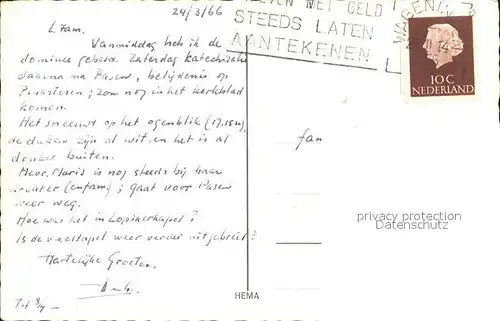 24/3/66
GELD
STEEDS LATEN
AANTEKENEN
10 C
NEDERLAND
L. fam.
Vanmiddag heb ik de
dominee gebeld. Zaterdag
daarna na Pasen, belijdenis op
; zou nog in het kerkblad
komen.
Het sneeuwt op het ogenblik (17.15 u),
de daken zijn al wit en het is al
donker buiten.
Mevr. Maris is nog steeds bij haar
dochter ; gaat voor Pasen
weer weg.
Hoe was het in Lopikerkapel?
Is de veestapel weer verder uitgebreid?
Hartelijke Groeten,
fam
HEMA
privacy protection
Datenschutz